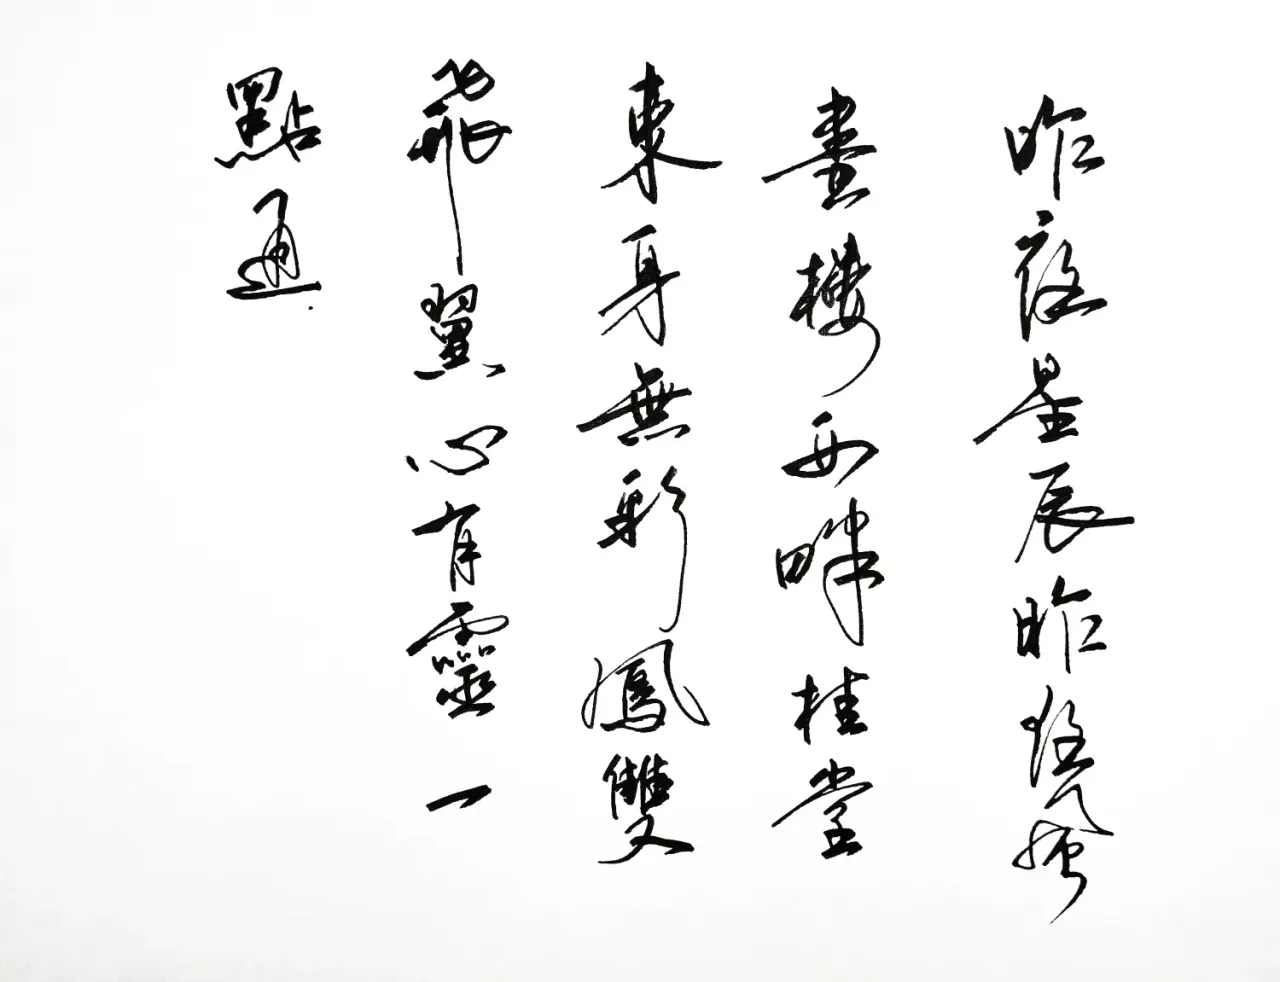 昨夜星辰昨夜風
畫樓西畔桂堂
東身無彩鳳雙
飛翼心有靈一
點通